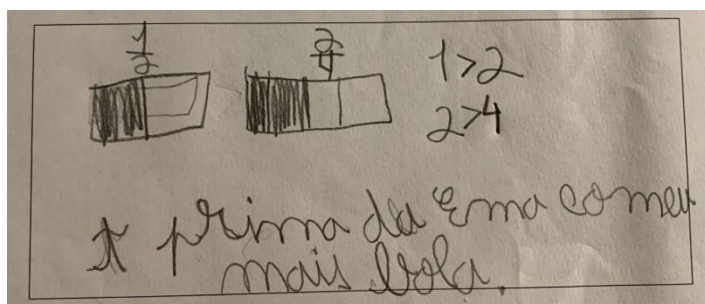 1/2 2/4
1>2
2>4
A prima da Ema comeu
mais bola.